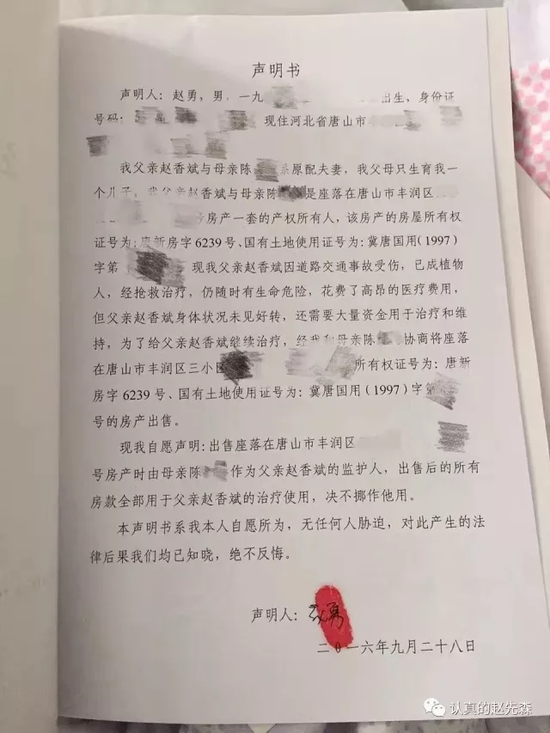 声明书
声明人：赵勇，男，一九 出生，身份证
号码： 现住河北省唐山市
我父亲赵香斌与母亲陈 系原配夫妻，我父母只生育我一
个儿子，我父亲赵香斌与母亲陈 是座落在唐山市丰润区
房产一套的产权所有人，该房产的房屋所有权
证号为：唐新房字 6239 号、国有土地使用证号为：冀唐国用(1997)
字第 现我父亲赵香斌因道路交通事故受伤，已成植物
人，经抢救治疗，仍随时有生命危险，花费了高昂的医疗费用，
但父亲赵香斌身体状况未见好转，还需要大量资金用于治疗和维
持，为了给父亲赵香斌继续治疗，经我和母亲陈 协商将座落
在唐山市丰润区三小区 所有权证号为：唐新
房字 6239 号、国有土地使用证号为：冀唐国用(1997)字第
号的房产出售。
现我自愿声明：出售座落在唐山市丰润区
号房产时由母亲陈 作为父亲赵香斌的监护人，出售后的所有
房款全部用于父亲赵香斌的治疗使用，决不挪作他用。
本声明书系我本人自愿所为，无任何人胁迫，对此产生的法
律后果我们均已知晓，绝不反悔。
声明人：赵勇
二0一六年九月二十八日
认真的赵先森